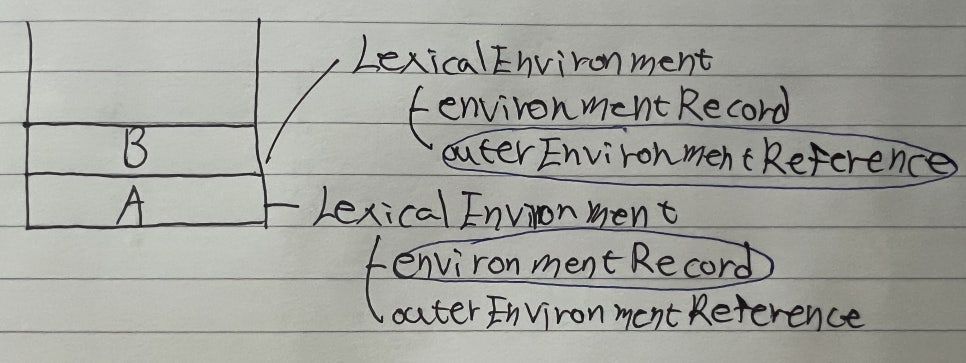 LexicalEnvironment
environmentRecord
B
outerEnvironmentReference
A
LexicalEnvironment
environmentRecord
outerEnvironmentReference